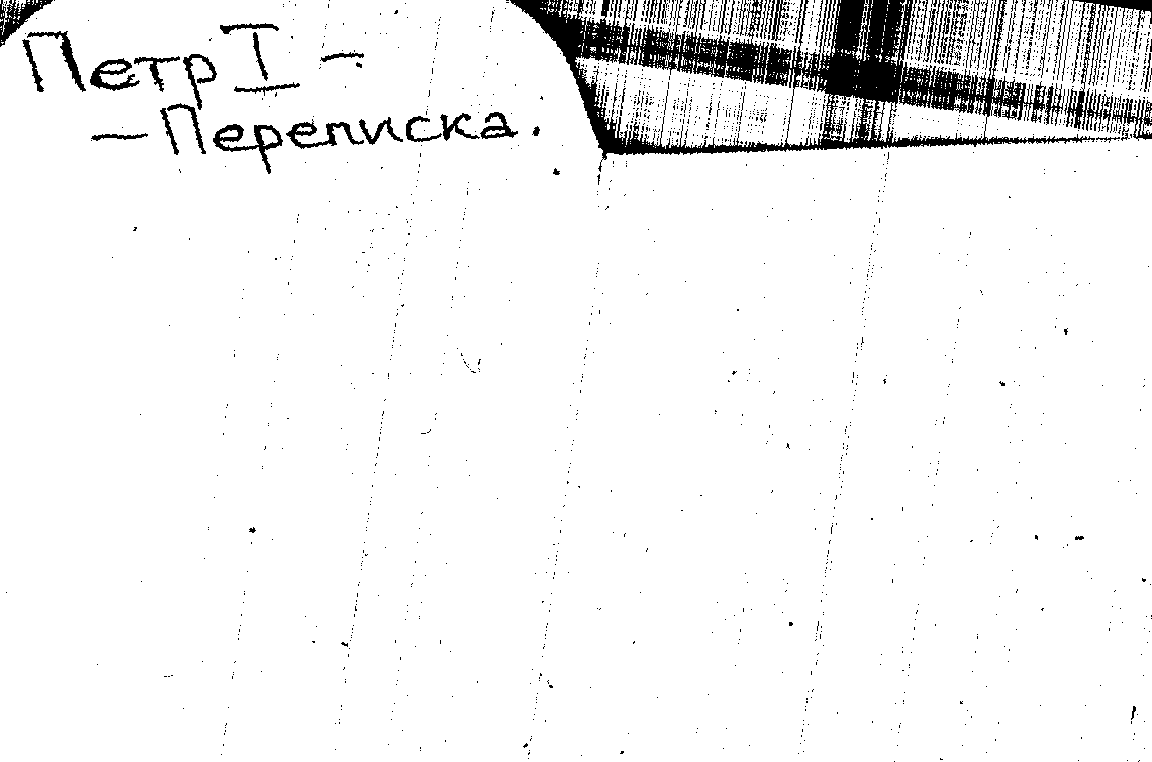 Петр I –
– Переписка.